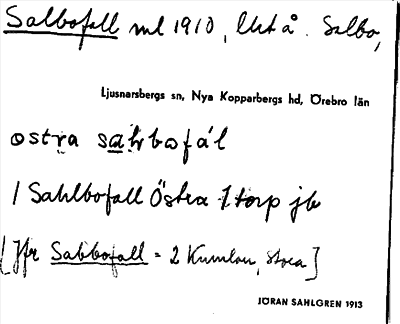 Salbofall ml 1910, Salbo,
Ljusnarsbergs sn, Nya Kopparbergs hd, Örebro län
ostra sahbofál
/ Sahlbofall Östra 1 torp jb
[Jfr Sabbofall = 2 Kumlan, Stora]
JÖRAN SAHLGREN 1913